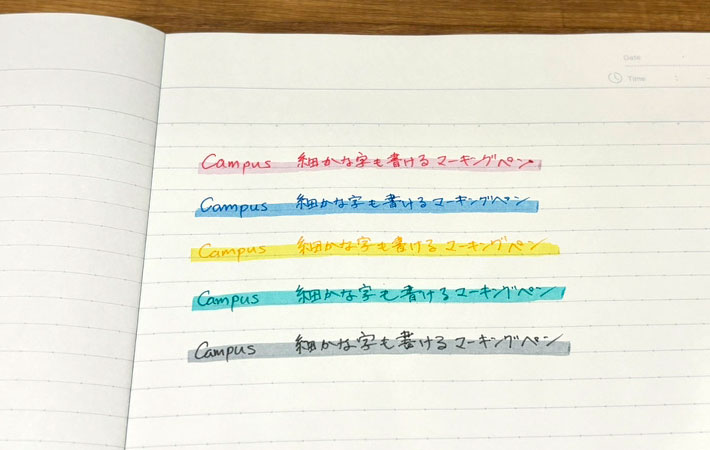 Date
Time :
Campus 細かな字も書けるマーキングペン
Campus 細かな字も書けるマーキングペン
Campus 細かな字も書けるマーキングペン
Campus 細かな字も書けるマーキングペン
Campus 細かな字も書けるマーキングペン